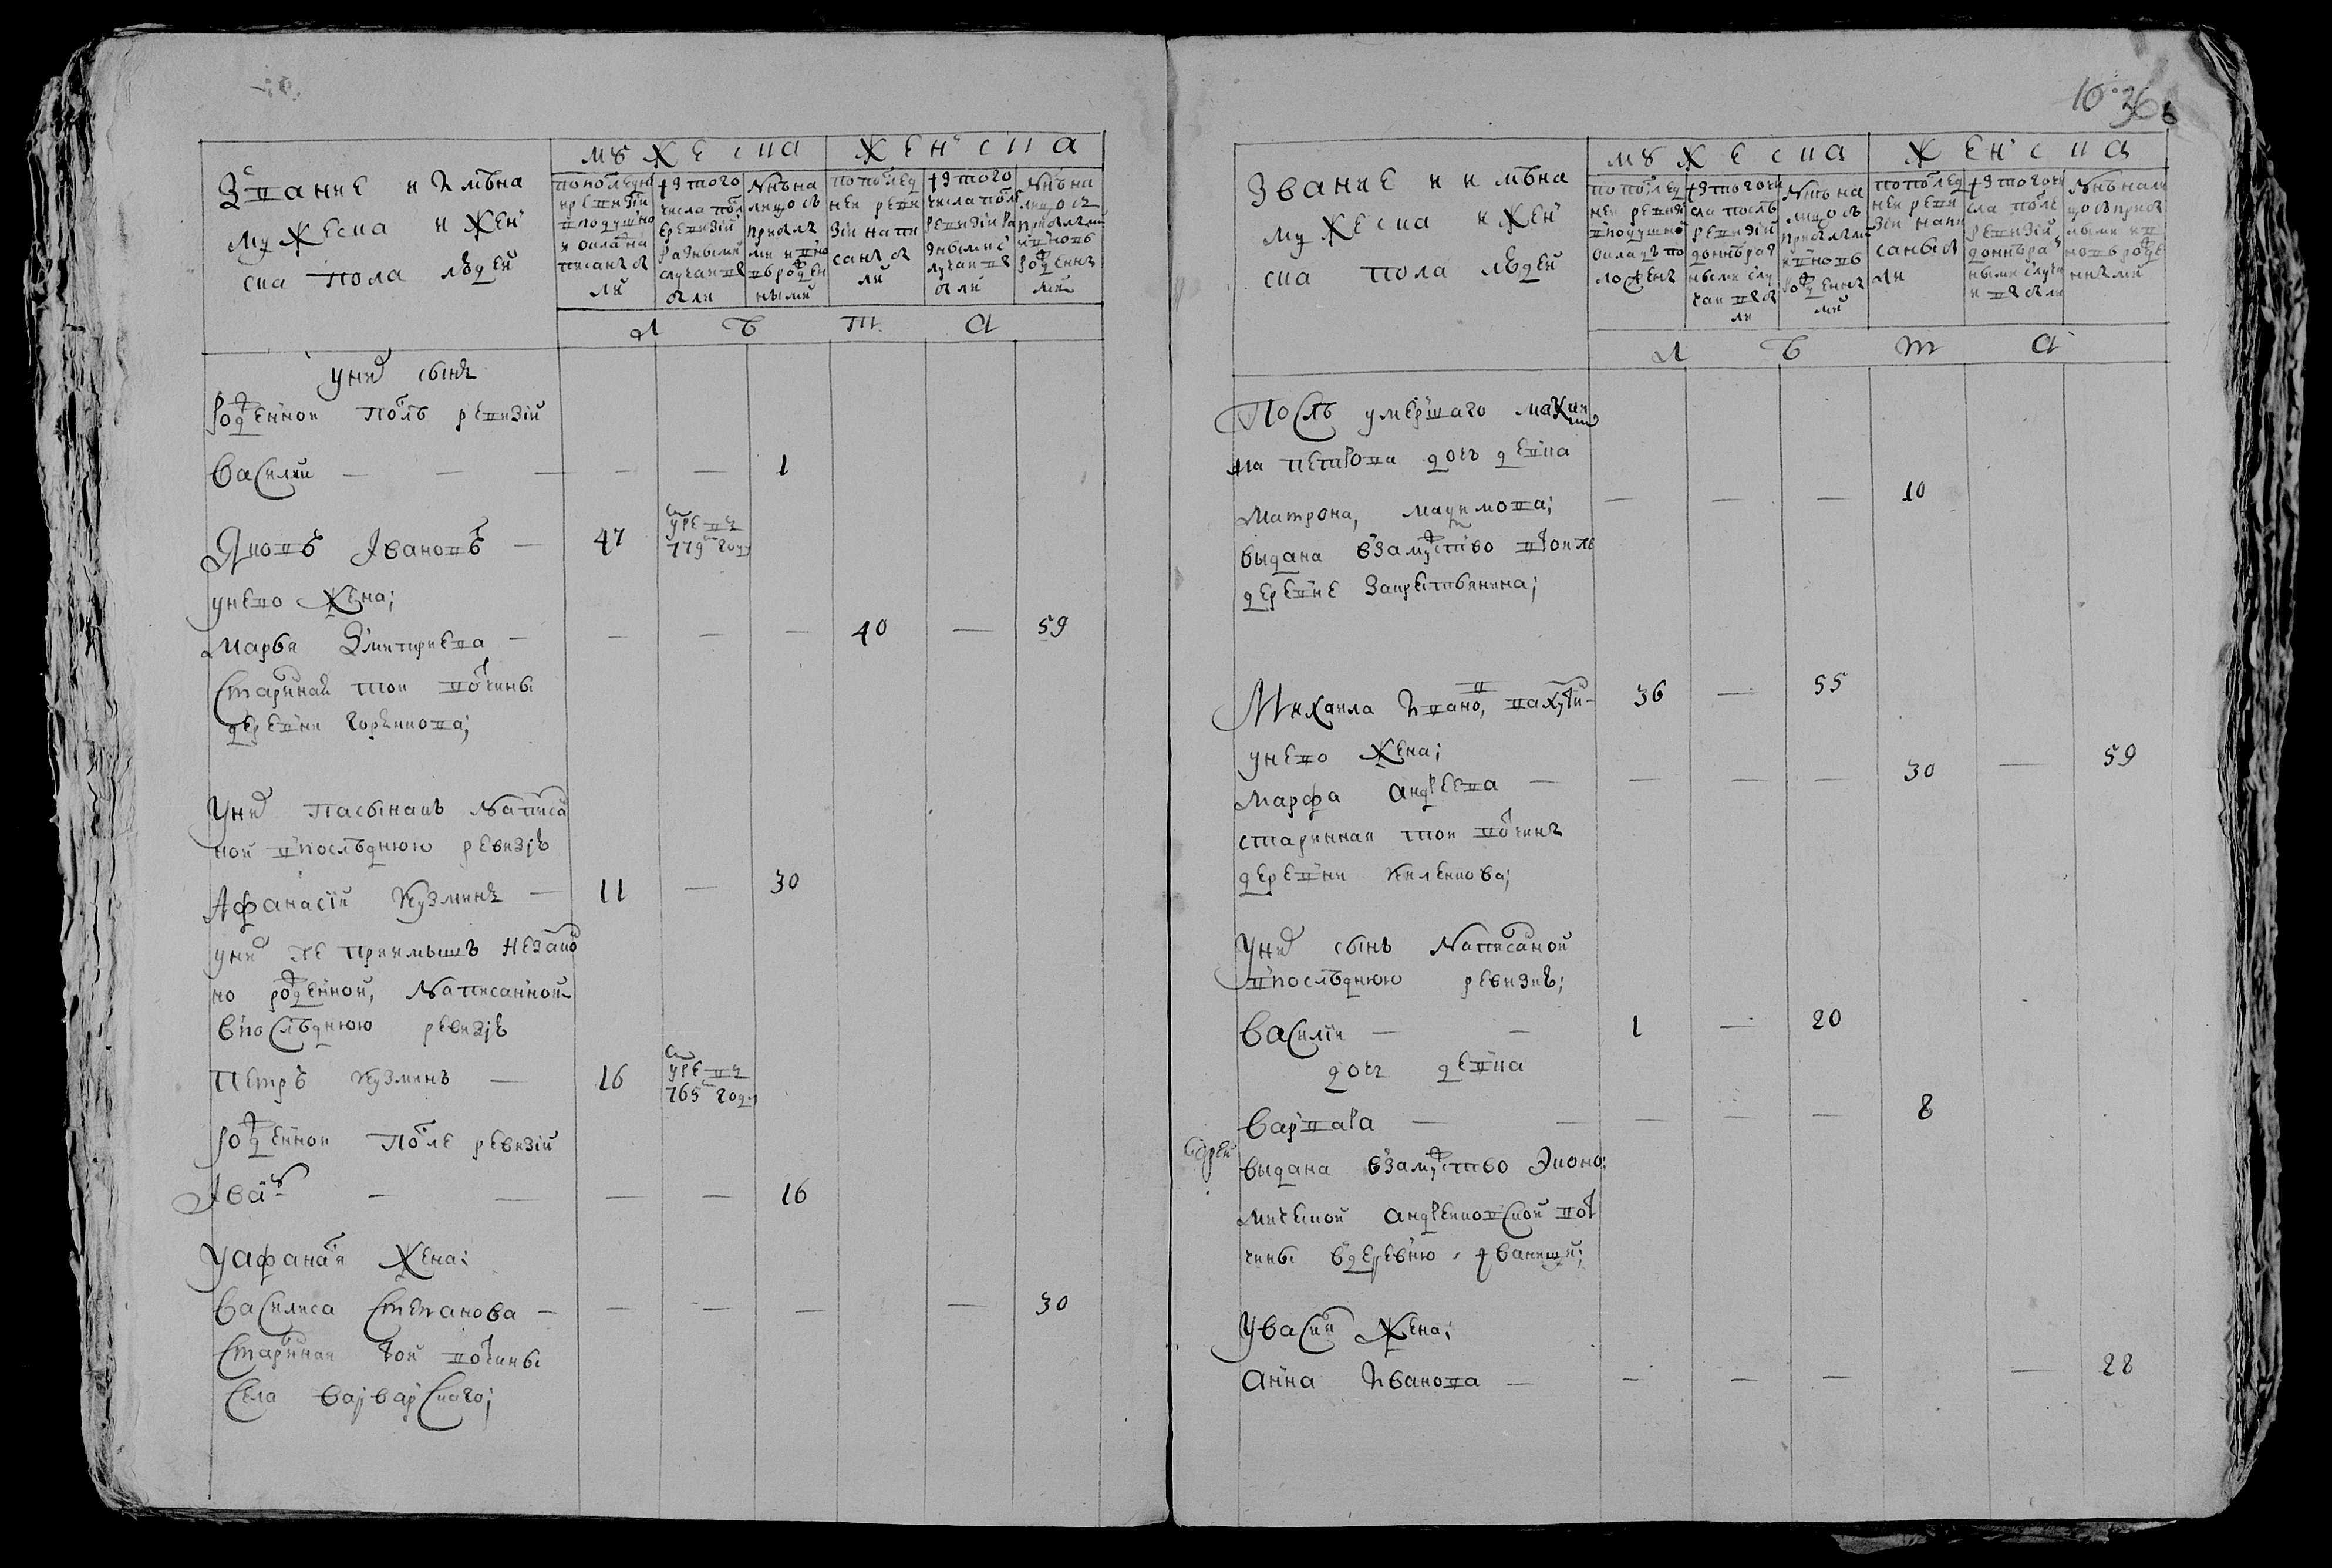 Звание и имѣна
мужеска и жен
ска пола людей
мужеска
женска
пополедн
ей ревизiи
в подушно
и окладъ на
писанъ бы
ли
из того
числа посл
ревизiи
разными
случаи вы
были
Нынѣ на
лицо съ
прибылы
ми и вно
вь рожден
ными
по послед
ней реви
зiи напи
санъ бы
ли
из того
числа посл
ревизiи ра
зными с
лучаи вы
были
Нынѣ на
лицо съ
прибылыми
и вновь
рожденны
ми
л ѣ т а
у них сынъ
рожденной послѣ ревизiи
Василий — 1
Яковъ Ивановъ — 47 умре в 779м году
у нево жена;
Марья Дмитриева — 40 — 59
старинная той вотчины
деревни Горкинова;
У них пасынакъ написа
ной в последнюю ревизiю
Афанасiй Кузминъ — 11 — 30
у них же приимышъ незако
но рожденной, написанной
в последнюю ревизiю
Петръ Кузминъ — 16 умре в 765м году
рожденной после ревизiи
Иванъ — 16
У Афанасiя жена:
Василиса Степанова — 30
старинная той вотчины
села Варварскаго;
36
Звание и имѣна
мужеска и жен
ска пола людей
мужеска
женска
по послед
ней ревизiи
в подушной
окладъ по
ложенъ
из того чи
сла послѣ
ревизiи
до ннѣ раз
ными слу
чаи выбы
ли
Ннѣ на
лицо съ
прибылыми
и вновь
рожденны
ми
по послед
ней реви
зiи напи
саны бы
ли
из того чи
сла после
ревизiи
до ннѣ раз
ными случа
и выбыли
Ннѣ на ли
цо съ приб
лыми и в
новь рожде
нными
л ѣ т а
Послѣ умершаго Макси
ма Петрова дочь девка
Матрона, Максимова; 10
выдана в замужство в тоиже
деревне за крестьянина;
Михаила Ивановъ, 36 — 55
у нево жена;
Марфа Андреева — 30 — 59
старинная той вотчинъ
деревни Киленкова;
У них сынъ написаной
в последнюю ревизию;
Василiй — 1 — 20
дочь девка
Варвара — 8
выдана в замужство Эконо
мической Андреиковской вот
чины в деревню Иванищи;
У Василiя жена;
Анна Иванова — 28